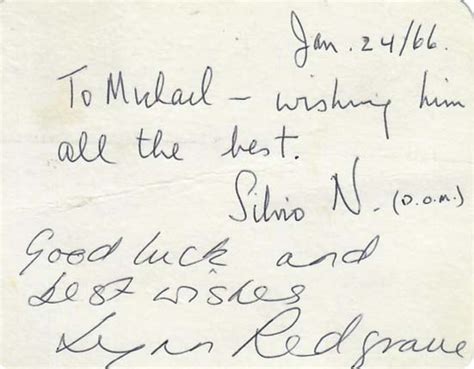 Jan. 24/66.
To Michael – wishing him
all the best.
Silvio N. (D.O.M.)
Good luck and
best wishes
Lynn Redgrave